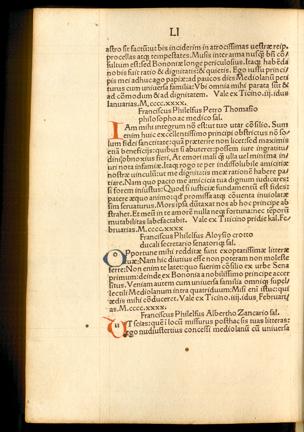 LI
astro sit factū: ut bis inciderim in atrocissimas uestræ reip.
procellas atqȝ tempestates. Mussis interarma nusqȝ bñ cō-
sultum est: sed Bononiæ longe periculosius. Itaqȝ habēda
nobis fuit ratio & dignitatis: & quietis. Ego iussu princi-
pis mei adhuc ago papiæ: ad paucos dies Mediolanū peti
turus cum uniuersa familia: Vbi omnia mihi parata sūt &
ad cōmodum & ad dignitatem. Vale ex Ticino. iii. idus
Ianuarias. M.cccc.xxxx.
Franciscus Philelfus Petro Thomasio
philosopho ac medico sal.
IAm mihi integrum nō est tuo utar cōsilio. Sum
enim huic excellentissimo principi obstrictus nō so-
lum fidei sanctitate: qua præterire non licet: sed maximis
ena beneficiis: quibus si abuterer: possem iure ingratitu-
dinis obnoxius fieri. At emori mali qȝ ulla uel minima in-
uri nota infamiæ. Itaqȝ rogo te per indissolubile amicitiæ
nostræ uinculum: ne dignitatis meæ rationē habere pa-
tiare. Nam quo pacto me amicicia tua dignum iudicares:
si forem iniustus: Quod si iusticiæ fundamētū est fides:
patere æquo animo: qȝ promissa atqȝ cōuenta inuiolatæ
sim seruaturus. Mors ipsa dūtaxat nos ab hoc principe ab
strahet. Et meū in te amorē nulla neqȝ fortunæ neqȝ teporū
mutabilitas labefactabit. Vale ex Ticino pridie kal. Fe-
bruarias. M.cccc.xxxx
Franciscus Philelfus Aloysio crotto
ducali secretario senatoriqȝ sal.
OPportune mihi redditæ sunt exoptatissimæ litteræ
tuæ: Nam hic diutius esse non poteram non moleste
ferre: Non enim te latet: quo fuerim cōsilio ex urbe Sena
primum: deinde ex Bononia a nobilissimo principe accer
situs. Veniam autem cum uniuersa familia omniqȝ supel-
lectili Mediolanum intra quatriduum: Misi enī istuc: quī
ædis mihi cōduceret. Vale ex Ticino .iiii. idus Februari
as. M.cccc.xxxx.
Franciscus Philelfus Albertho Zancario sal.
VT solas: que i locū missurus posthac sis tuas litteras:
ego nudiustertius concessi mediolanū cū uniuersa